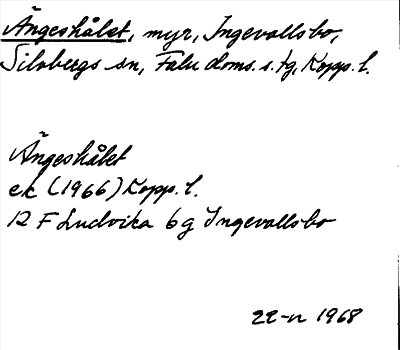 Ängeshålet, myr, Ingevallsbo,
Silvbergs sn, Falu doms. s. tg, Kopp. l.
Ängeshålet
ek (1966) Kopp. l.
12 F Ludvika 6g Ingevallsbo
1968